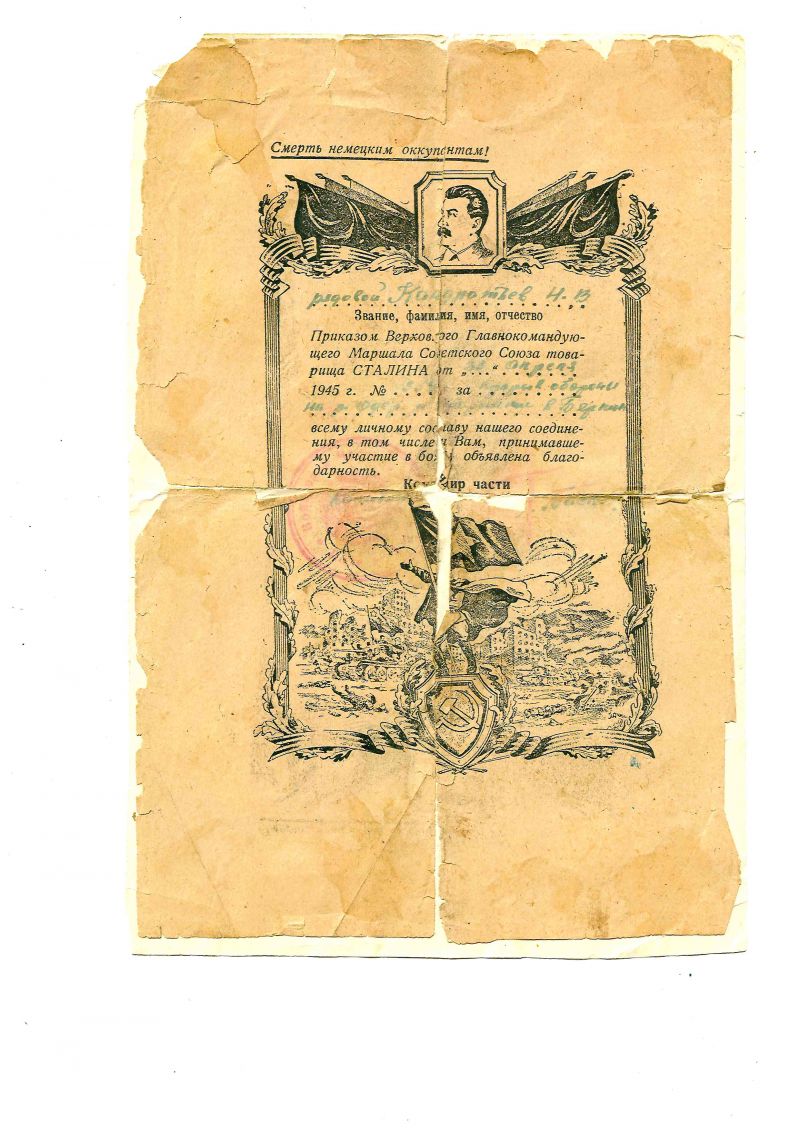 Смерть немецким оккупантам!
рядовой Кондратьев Н. В
Звание, фамилия, имя, отчество
Приказом Верховного Главнокомандую-
щего Маршала Советского Союза това-
рища СТАЛИНА от „...“ апреля
1945 г. № за прорыв обороны
на р. Одер и в Берлин
всему личному составу нашего соедине-
ния, в том числе и Вам, принимавшему
му участие в боях объявлена благо-
дарность.
Командир части